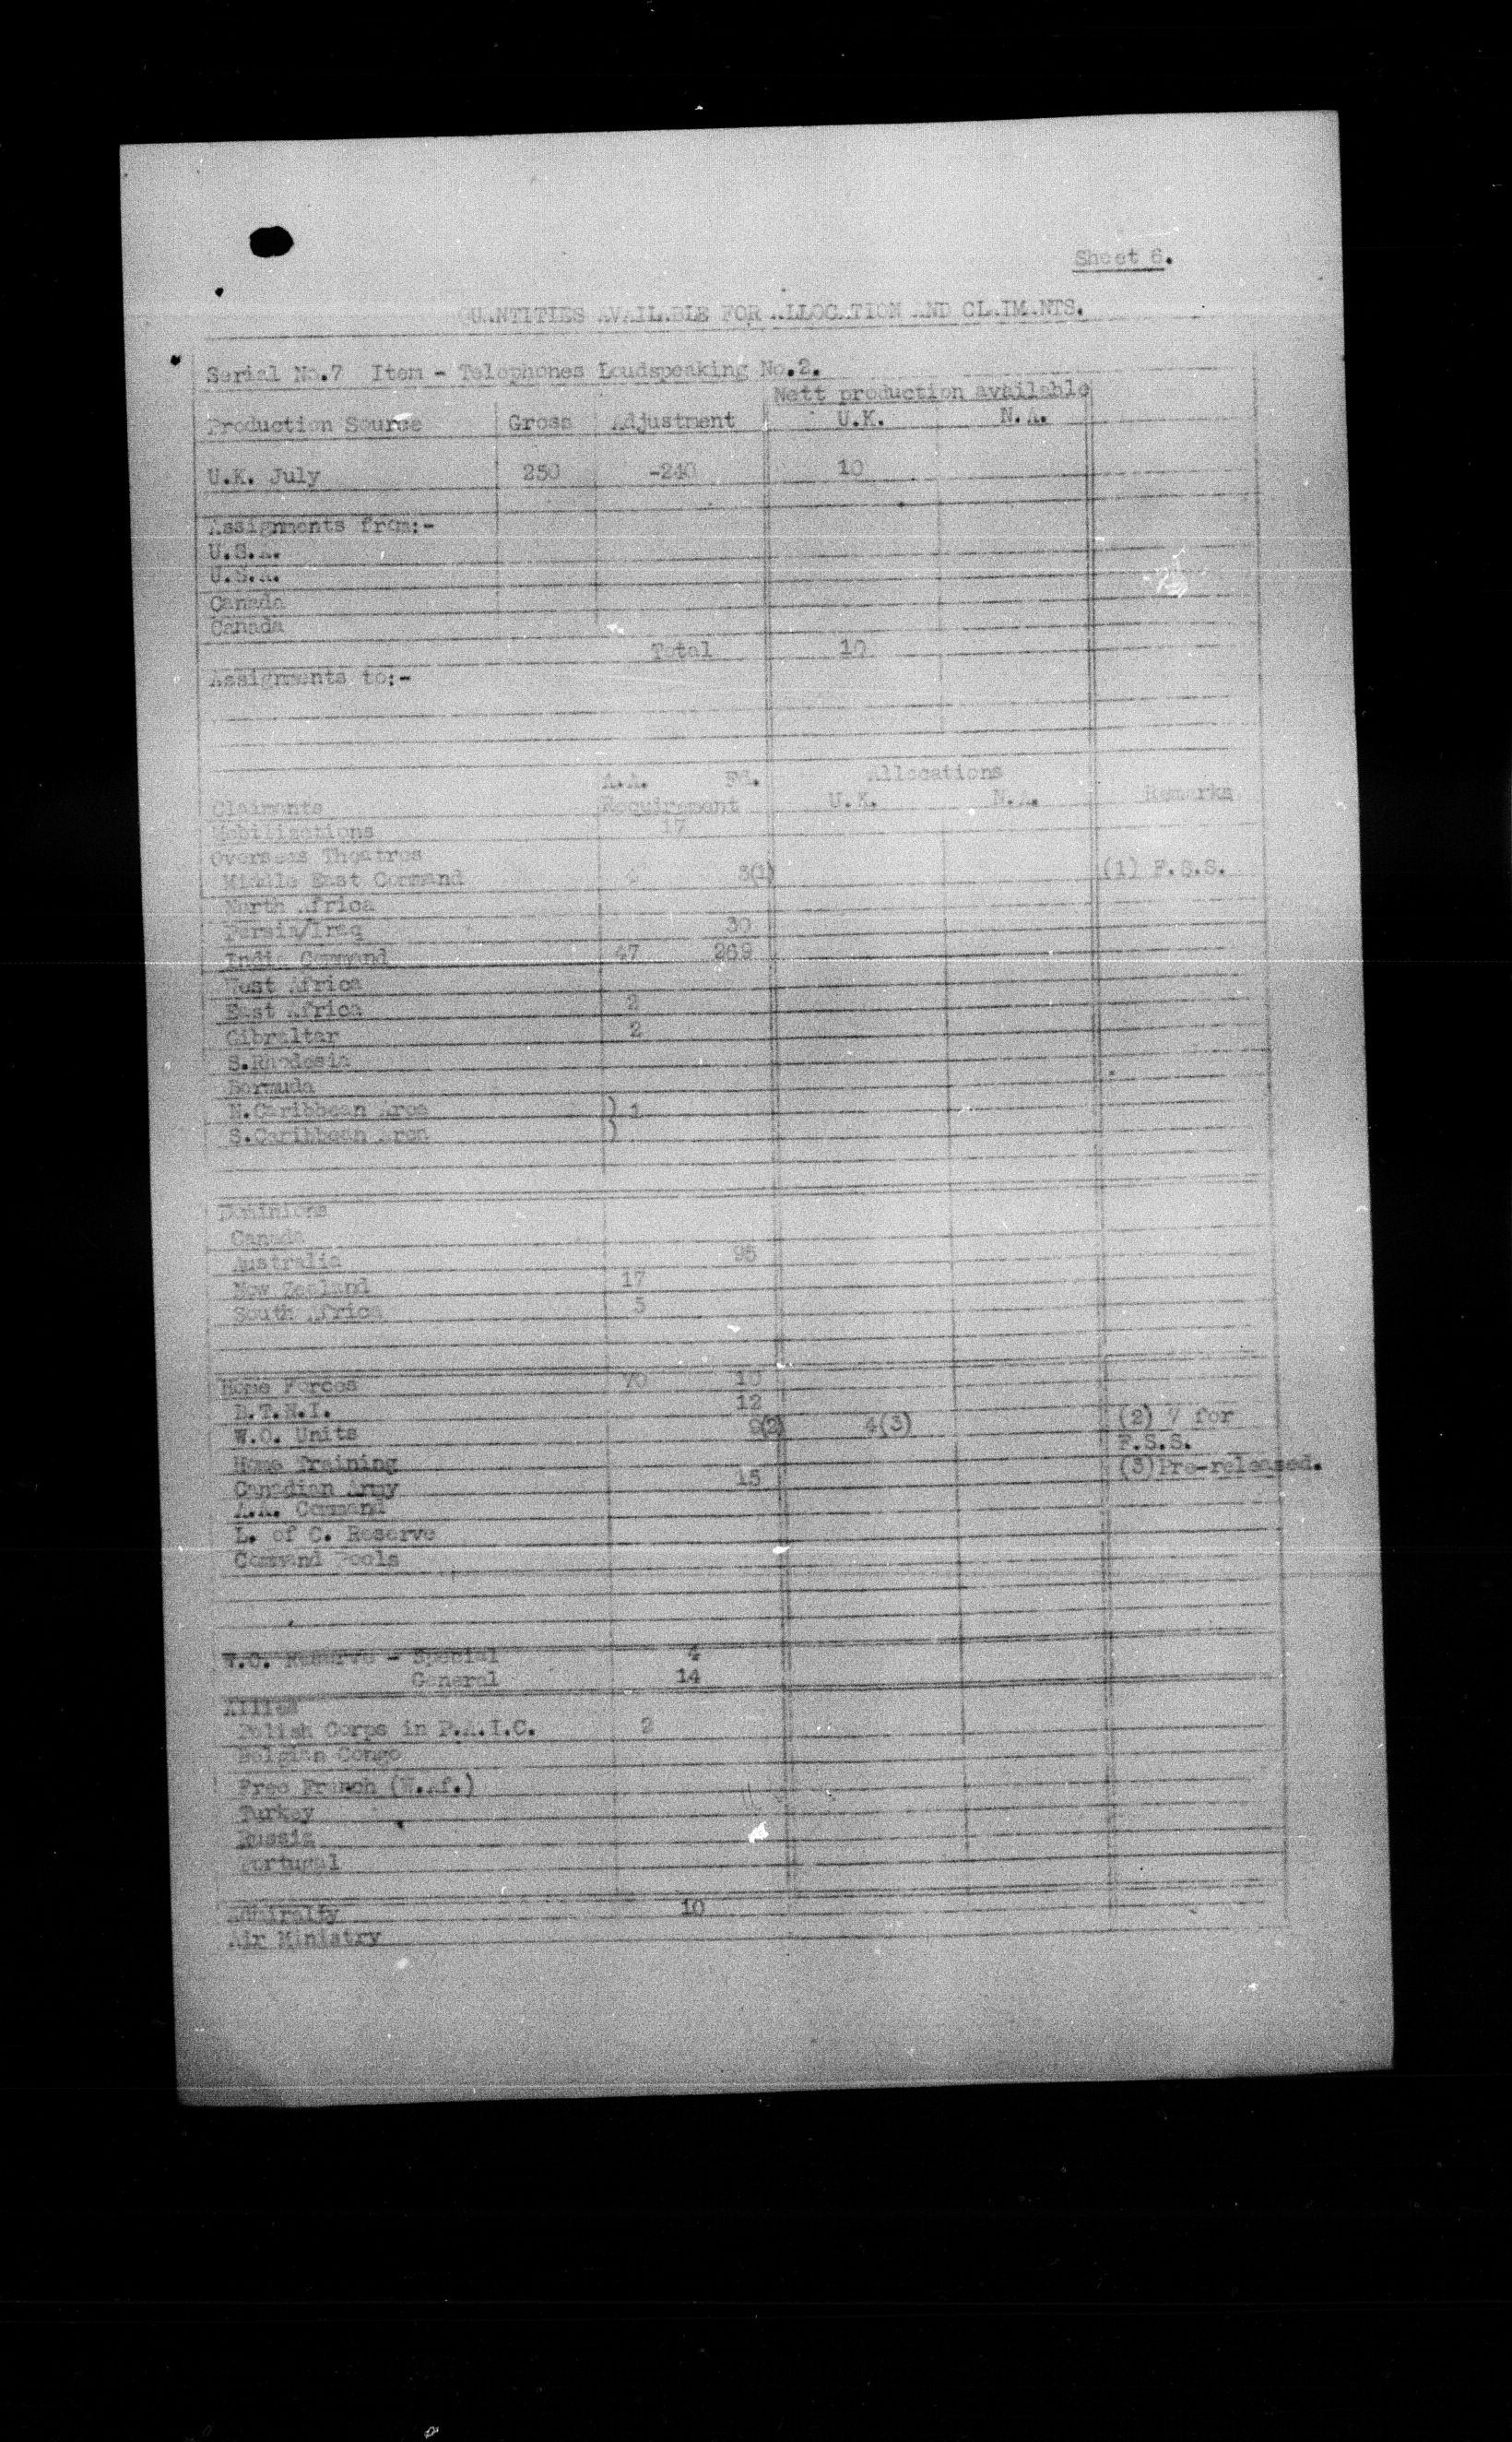 Sheet 6.
QUANTITIES AVAILABLE FOR ALLOCATION AND CLAIMANTS.
Serial No.7 Item - Telephones Loudspeaking No.2.
Nett production available
Production Source Gross Adjustment U.K. N.A.
U.K. July 250 -240 10
Assignments from:-
U.S.A.
U.S.A.
Canada
Canada
Total 10
Assignments to:-
A.A. Fd. Allocations
Claimants Requirement U.K. N.A. Remarks
Mobilizations 17
Overseas Theatres
Middle East Command 4 3(1) (1) F.S.S.
North Africa
Persia/Iraq 30
India Command 47 269
West Africa
East Africa 2
Gibraltar 2
S.Rhodesia
Bermuda
N.Caribbean Area ) 1
S.Caribbean Area )
Dominions
Canada
Australia 95
New Zealand 17
South Africa 5
Home Forces 70 10
B.T.N.I. 12
W.O. Units 9(2) 4(3) (2) 7 for
F.S.S.
Home Training (3)Pre-released.
Canadian Army 15
A.A. Command
L. of C. Reserve
Command Pools
W.O. Reserve - Special 4
General 14
Allies
Polish Corps in P.A.I.C. 2
Belgian Congo
Free French (W.Af.)
Turkey
Russia
Portugal
Admiralty 10
Air Ministry